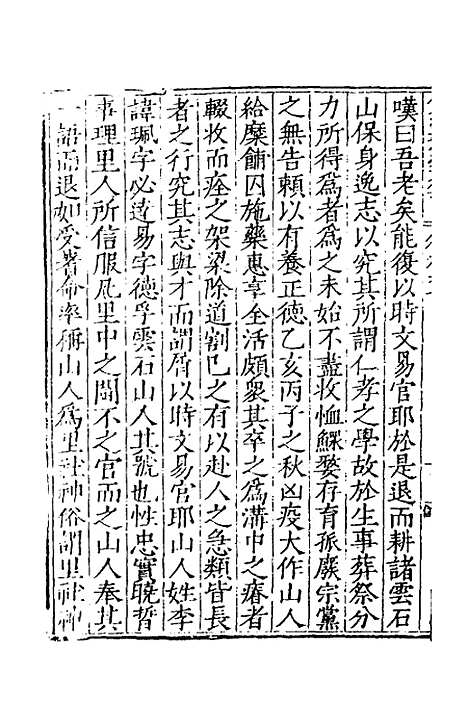 嘆曰吾老矣能復以時文易官耶於是退而耕諸雲石
山保身逸志以究其所謂仁孝之學故於生事葬祭分
力所得爲者爲之未始不盡收恤鰥嫠存育孤㷼宗黨
之無告頼以有養正德乙亥丙子之秋凶疫大作山人
給糜餔囚施藥惠享全活頗衆其卒之爲溝中之瘠者
輟收而瘞之架梁除道割己之有以赴人之急類皆長
者之行究其志與才而謂屑以時文易官耶山人姓李
諱珮字必達易字德孚雲石山人其號也性忠實曉晢
事理里人所信服凡里中之鬬不之官而之山人奉其
一語而退如受蓍命率稱山人爲里社神俗謂里社神